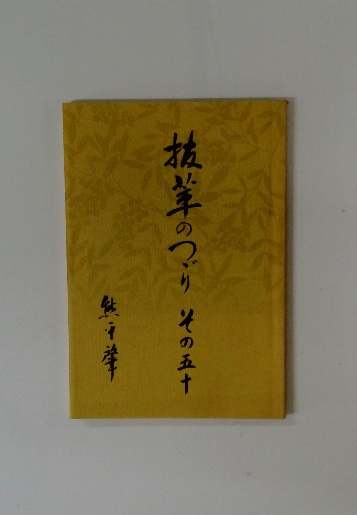 抜萃のつゞり その五十
熊平肇